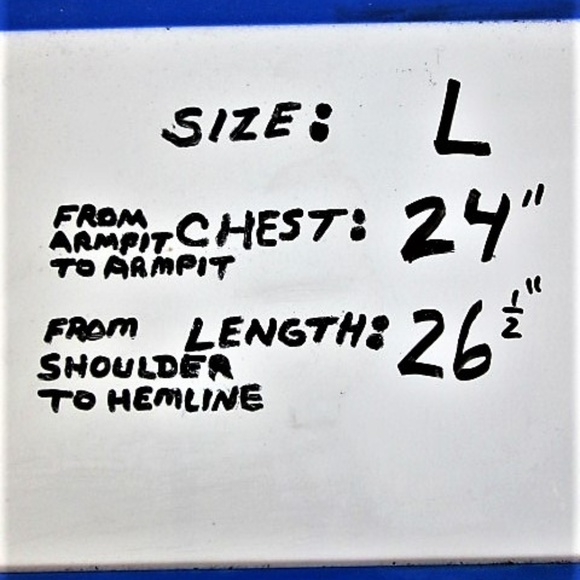 SIZE: L
FROM ARMPIT TO ARMPIT CHEST: 24"
FROM SHOULDER TO HEMLINE LENGTH: 26 1/2"